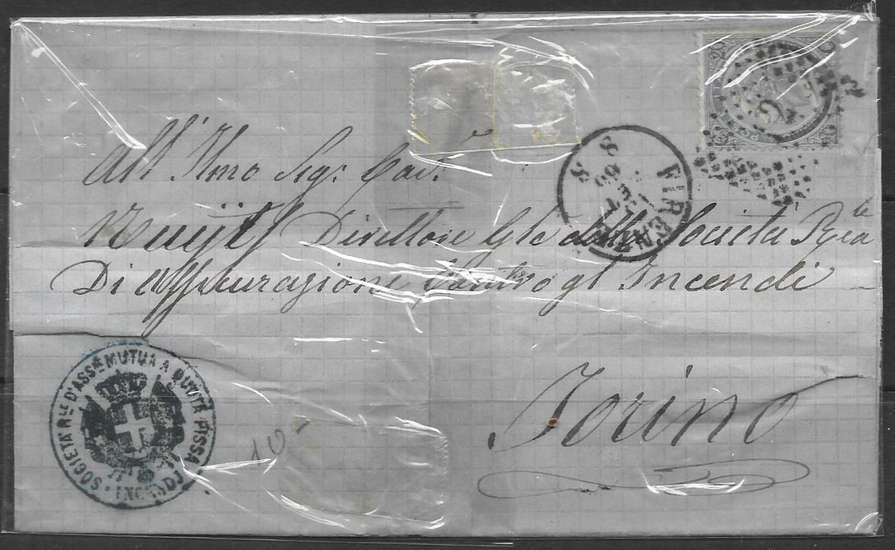 All' Illmo Sigr Cav.
Direttore Gle della Società Rle
Di Assicurazione Contro gl' Incendi
Torino
FIRENZE
SOCIETÀ RLE D'ASSNE MUTUA A QUOTA FISSA
INCENDJ
10-
20
20